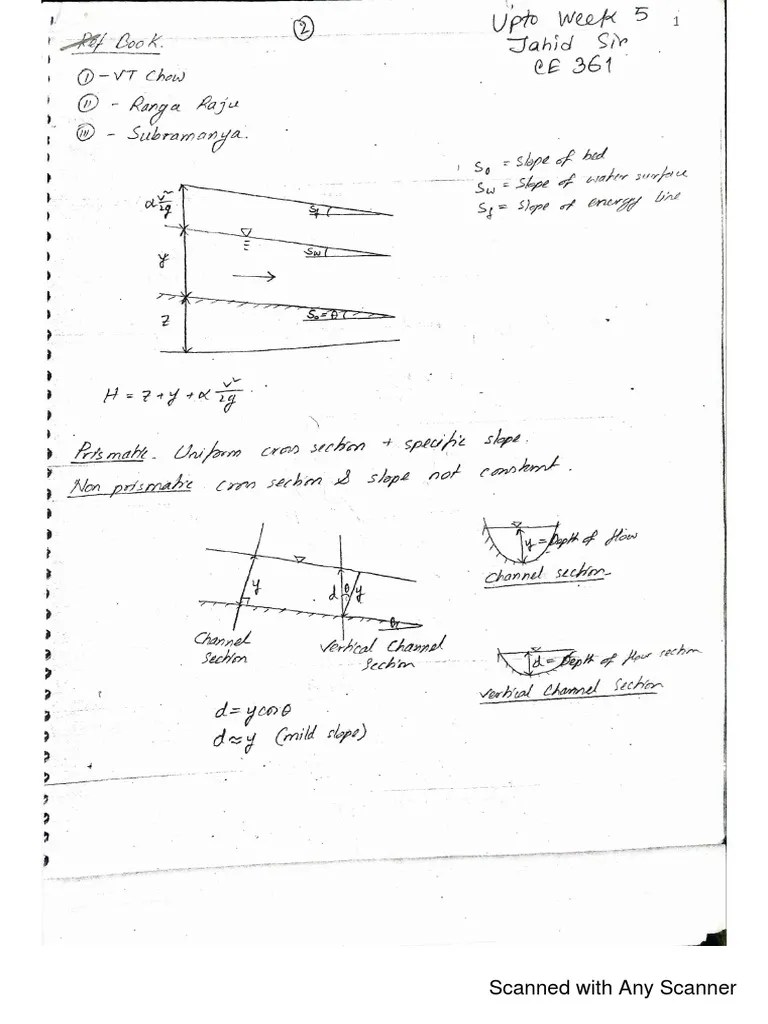 Ref Book.
2
Upto Week 5
Jahid Sir
CE 361
1
(i) - VT Chow
(ii) - Ranga Raju
(iii) - Subramanya.
S₀ = Slope of bed
Sw = Slope of water surface
Sf = Slope of energy line
α v²/2g
Sf
y
Sw
z
S₀ = θ
H = z + y + α v²/2g
Prismatic - Uniform cross section + specific slope.
Non prismatic cross section & slope not constant.
y
d
θ
y
θ
Channel
Section
Vertical Channel
Section
y = Depth of flow
Channel section
d = Depth of flow section
Vertical Channel Section
d = y cos θ
d ≈ y (mild slope)
Scanned with Any Scanner